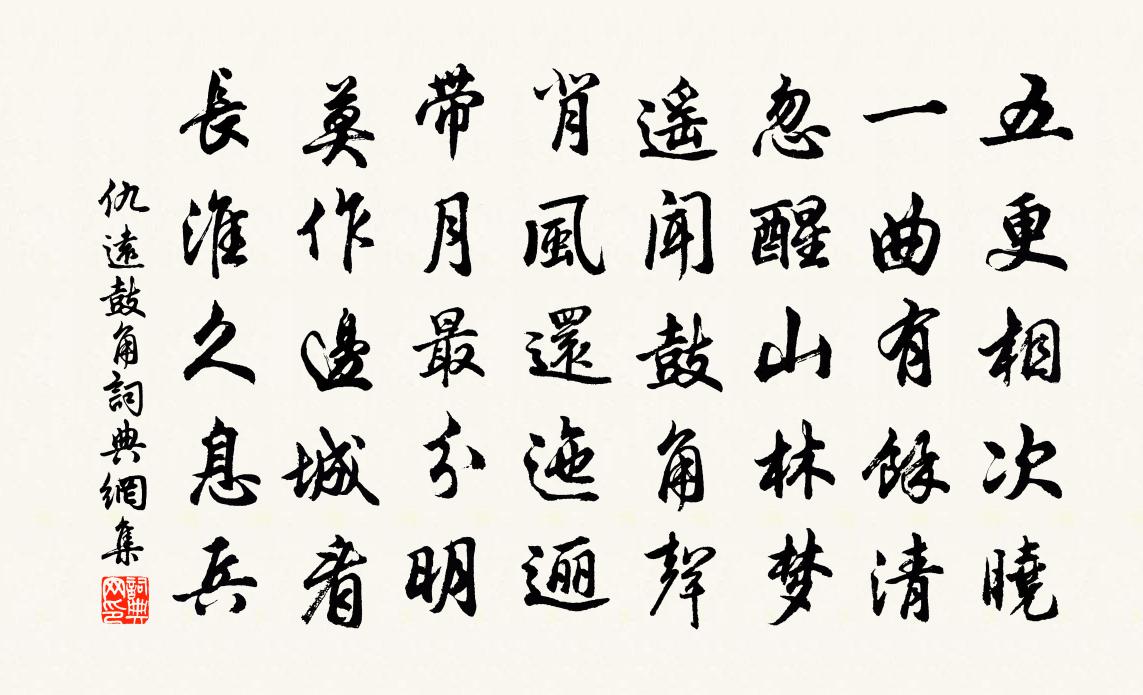 五更相次曉
一曲有餘清
忽醒山林梦
遥闻鼓角聲
背風還迤逦
带月最分明
莫作邊城看
長淮久息兵
仇遠鼓角詞典網集
詞典网印